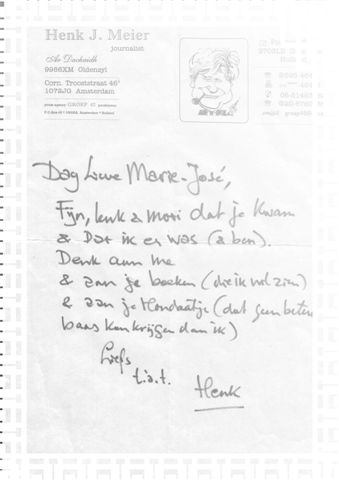 Henk J. Meier
journalist
An Dachaidh
9986XM Oldenzyl
Corn. Trooststraat 46'
1072JG Amsterdam
Dag Lieve Marie-José,
Fijn, leuk & mooi dat je kwam
& Dat ik er was (& ben).
Denk aan me
& aan je boeken (die ik wil zien)
& aan je Hondaatje (dat geen beter
baas kan krijgen dan ik)
Liefs
t.à.t.
Henk